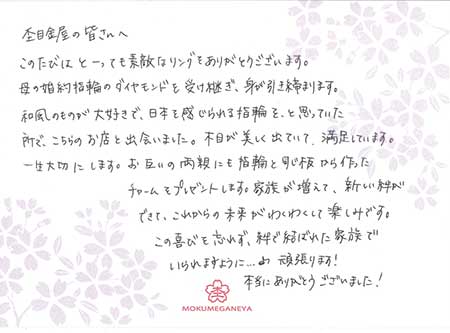 杢目金屋の皆さんへ
このたびは とーっても素敵なリングをありがとうございます。
母の婚約指輪のダイヤモンドを受け継ぎ、身が引き締まります。
和風のものが大好きで、日本を感じられる指輪を、と思っていた
所で、こちらのお店と出会いました。木目が美しく出ていて、満足しています。
一生大切にします。お互いの両親にも指輪と同じ板から作った
チャームをプレゼントします。家族が増えて、新しい絆が
できて、これからの未来がわくわくして楽しみです。
この喜びを忘れず、絆で結ばれた家族で
いられますように… 頑張ります!
本当にありがとうございました!
MOKUMEGANEYA